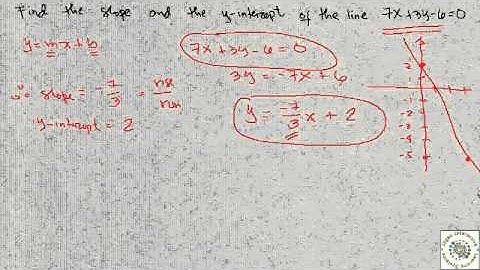 Find the slope and the y-intercept of the line 7x+3y-6=0
y=mx+b
∴ slope = -7/3 = rise/run
y-intercept = 2
7x+3y-6=0
3y=-7x+6
y = -7/3 x + 2
2
-1
-2
-3
-4
-5